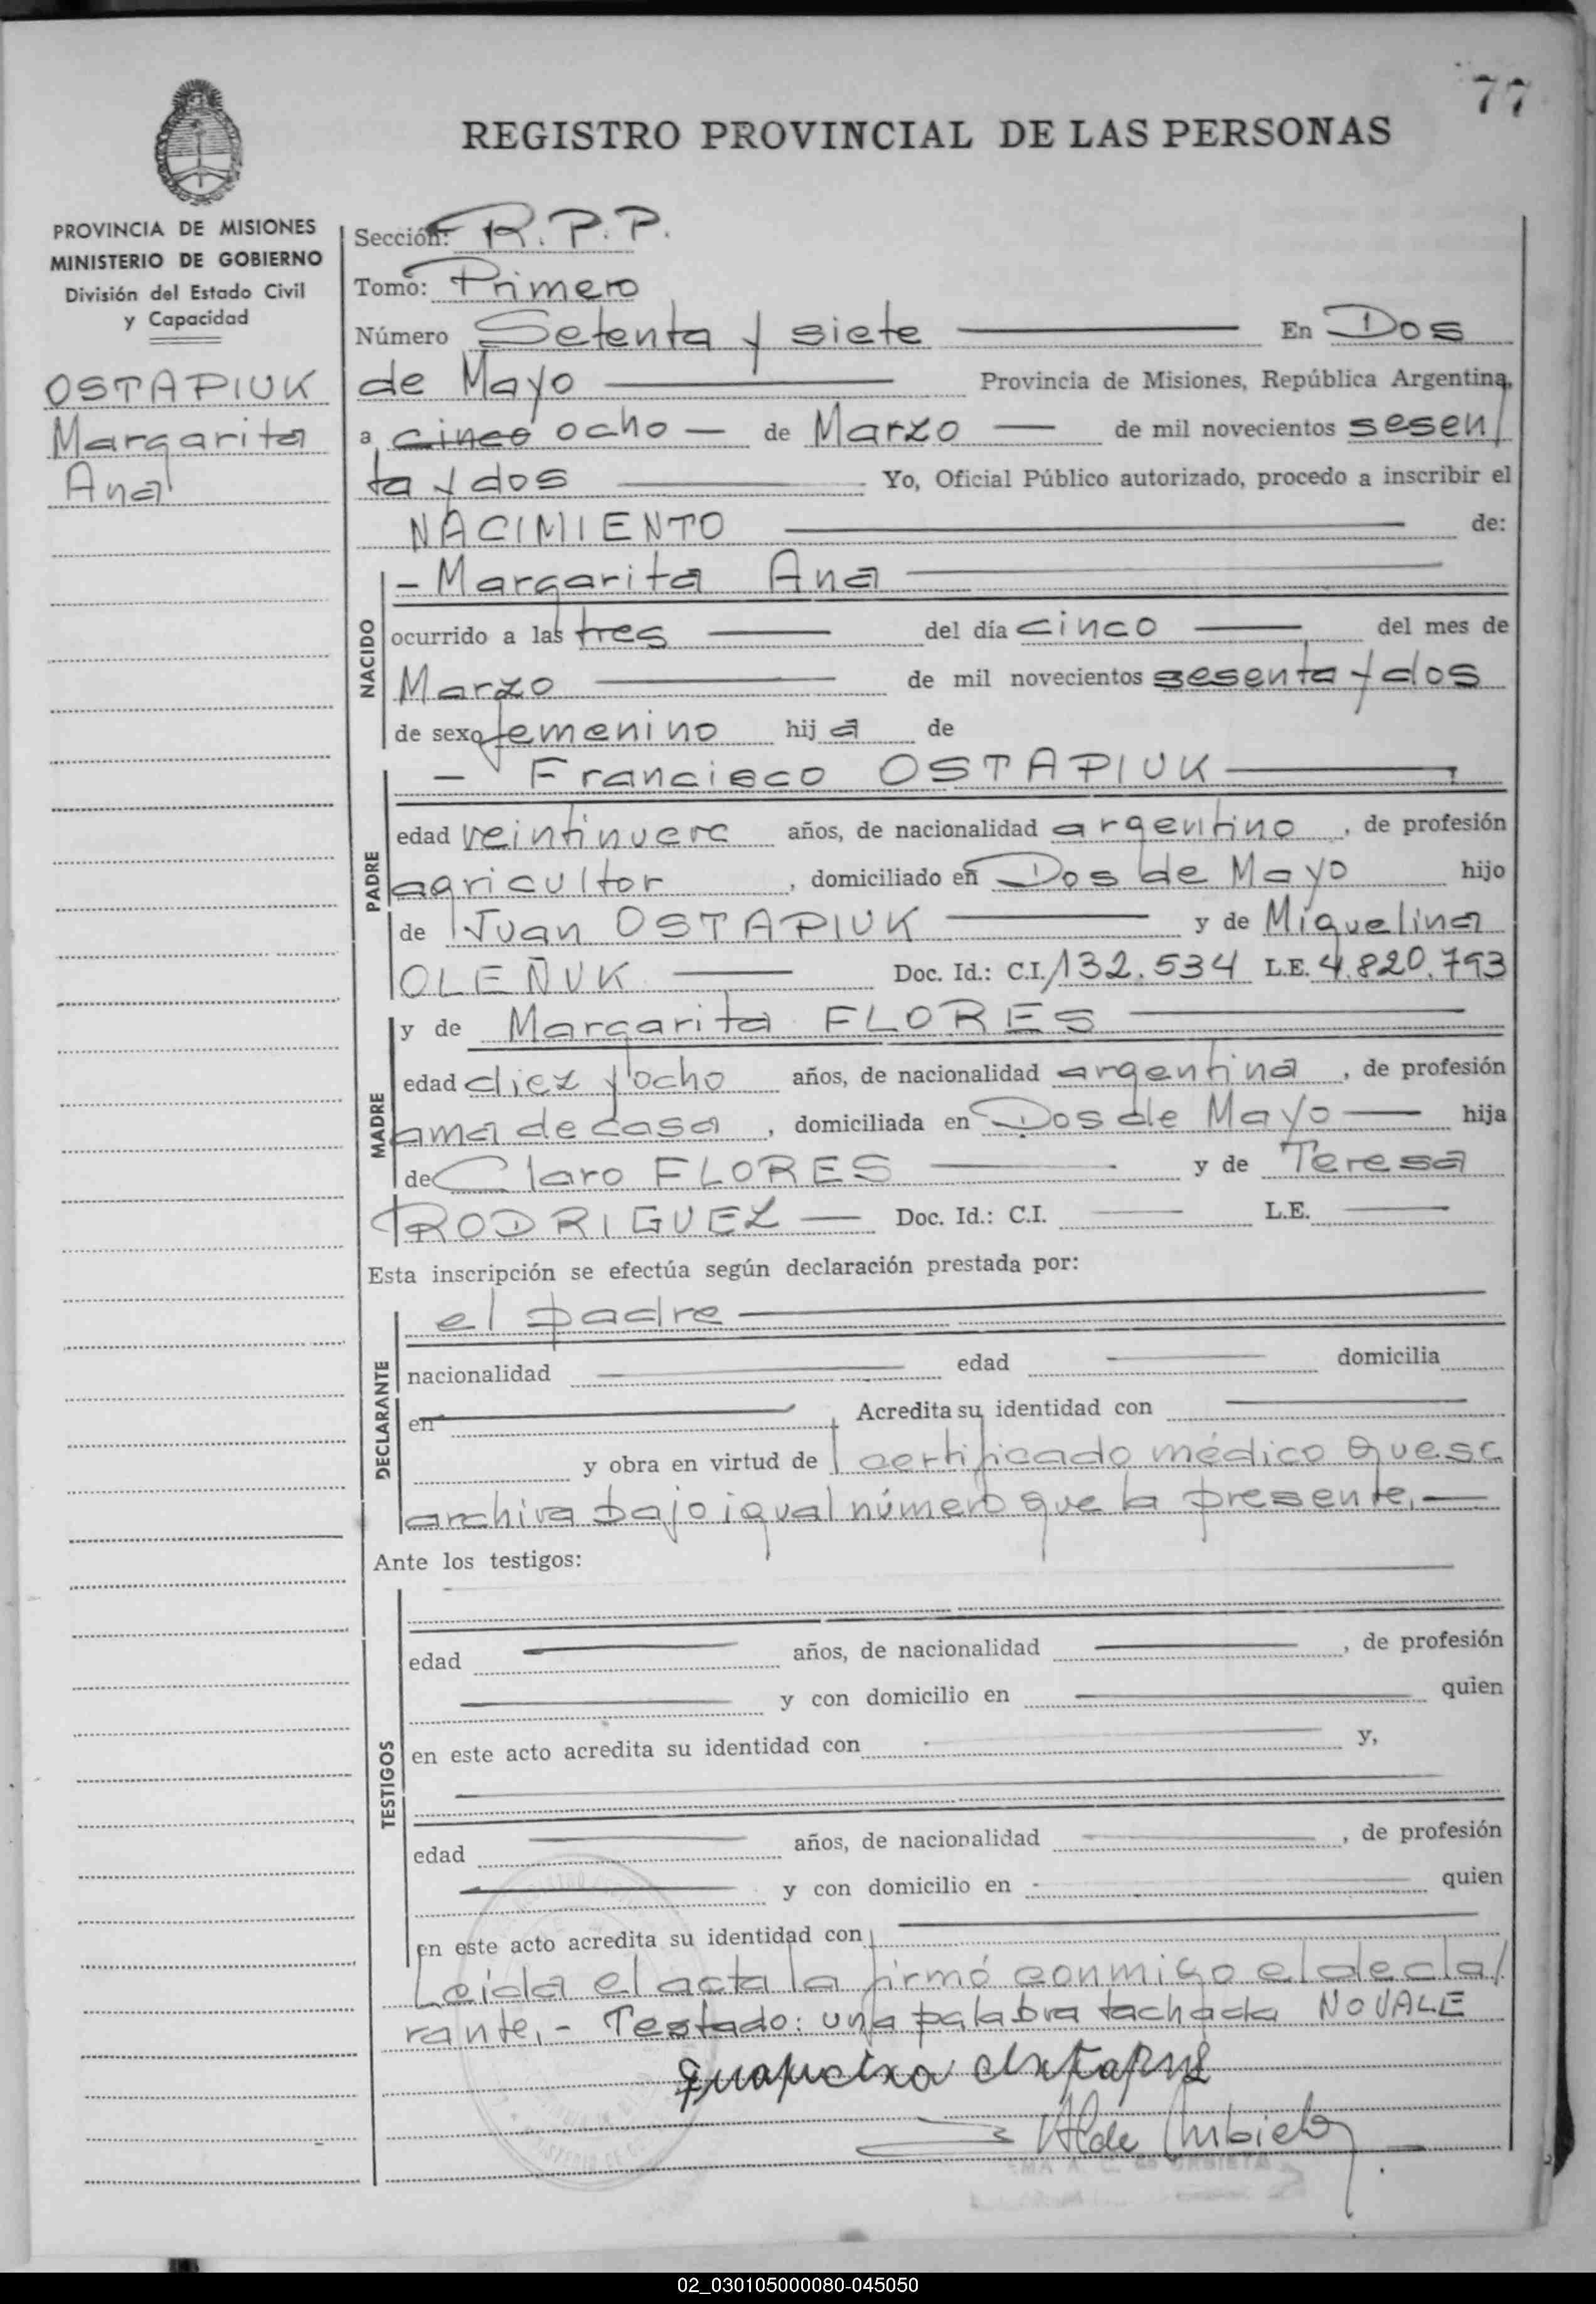 77
REGISTRO PROVINCIAL DE LAS PERSONAS
PROVINCIA DE MISIONES
MINISTERIO DE GOBIERNO
División del Estado Civil
y Capacidad
OSTAPIUK
Margarita
Ana
Sección: R.P.P.
Tomo: Primero
Número Setenta y siete En Dos
de Mayo Provincia de Misiones, República Argentina,
a cinco ocho — de Marzo — de mil novecientos sesen/
ta y dos Yo, Oficial Público autorizado, procedo a inscribir el
NACIMIENTO de:
NACIDO
- Margarita Ana
ocurrido a las tres del día cinco del mes de
Marzo de mil novecientos sesenta y dos
de sexo femenino hija de
PADRE
- Francisco OSTAPIUK
edad veintinueve años, de nacionalidad argentino, de profesión
agricultor, domiciliado en Dos de Mayo hijo
de Juan OSTAPIUK y de Miguelina
OLEÑUK Doc. Id.: C.I. 132.534 L.E. 4.820.793
MADRE
y de Margarita FLORES
edad diez y ocho años, de nacionalidad argentina, de profesión
ama de casa, domiciliada en Dos de Mayo — hija
de Claro FLORES y de Teresa
RODRIGUEZ — Doc. Id.: C.I. — L.E. —
Esta inscripción se efectúa según declaración prestada por:
DECLARANTE
el padre
nacionalidad edad domicilia
en Acredita su identidad con
y obra en virtud de certificado médico que se
archiva bajo igual número que la presente.—
Ante los testigos:
TESTIGOS
edad años, de nacionalidad , de profesión
y con domicilio en quien
en este acto acredita su identidad con y,
edad años, de nacionalidad , de profesión
y con domicilio en quien
en este acto acredita su identidad con
Leída el acta la firmó conmigo el decla/
rante.- Testado: una palabra tachada NO VALE
02_030105000080-045050